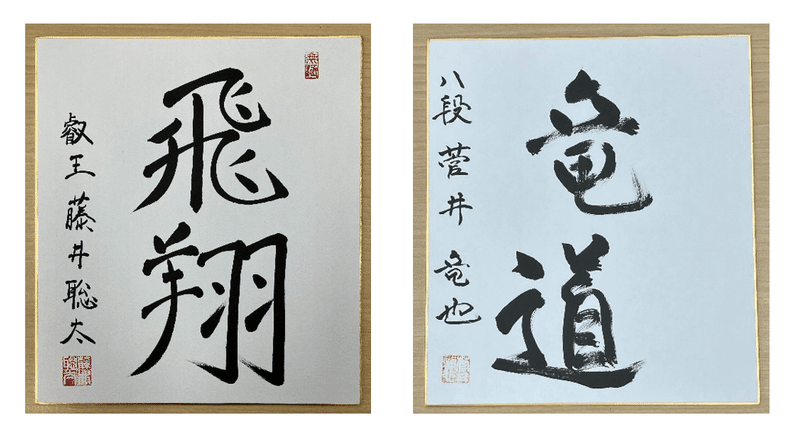 飛翔
叡王 藤井聡太
竜道
八段 菅井 竜也